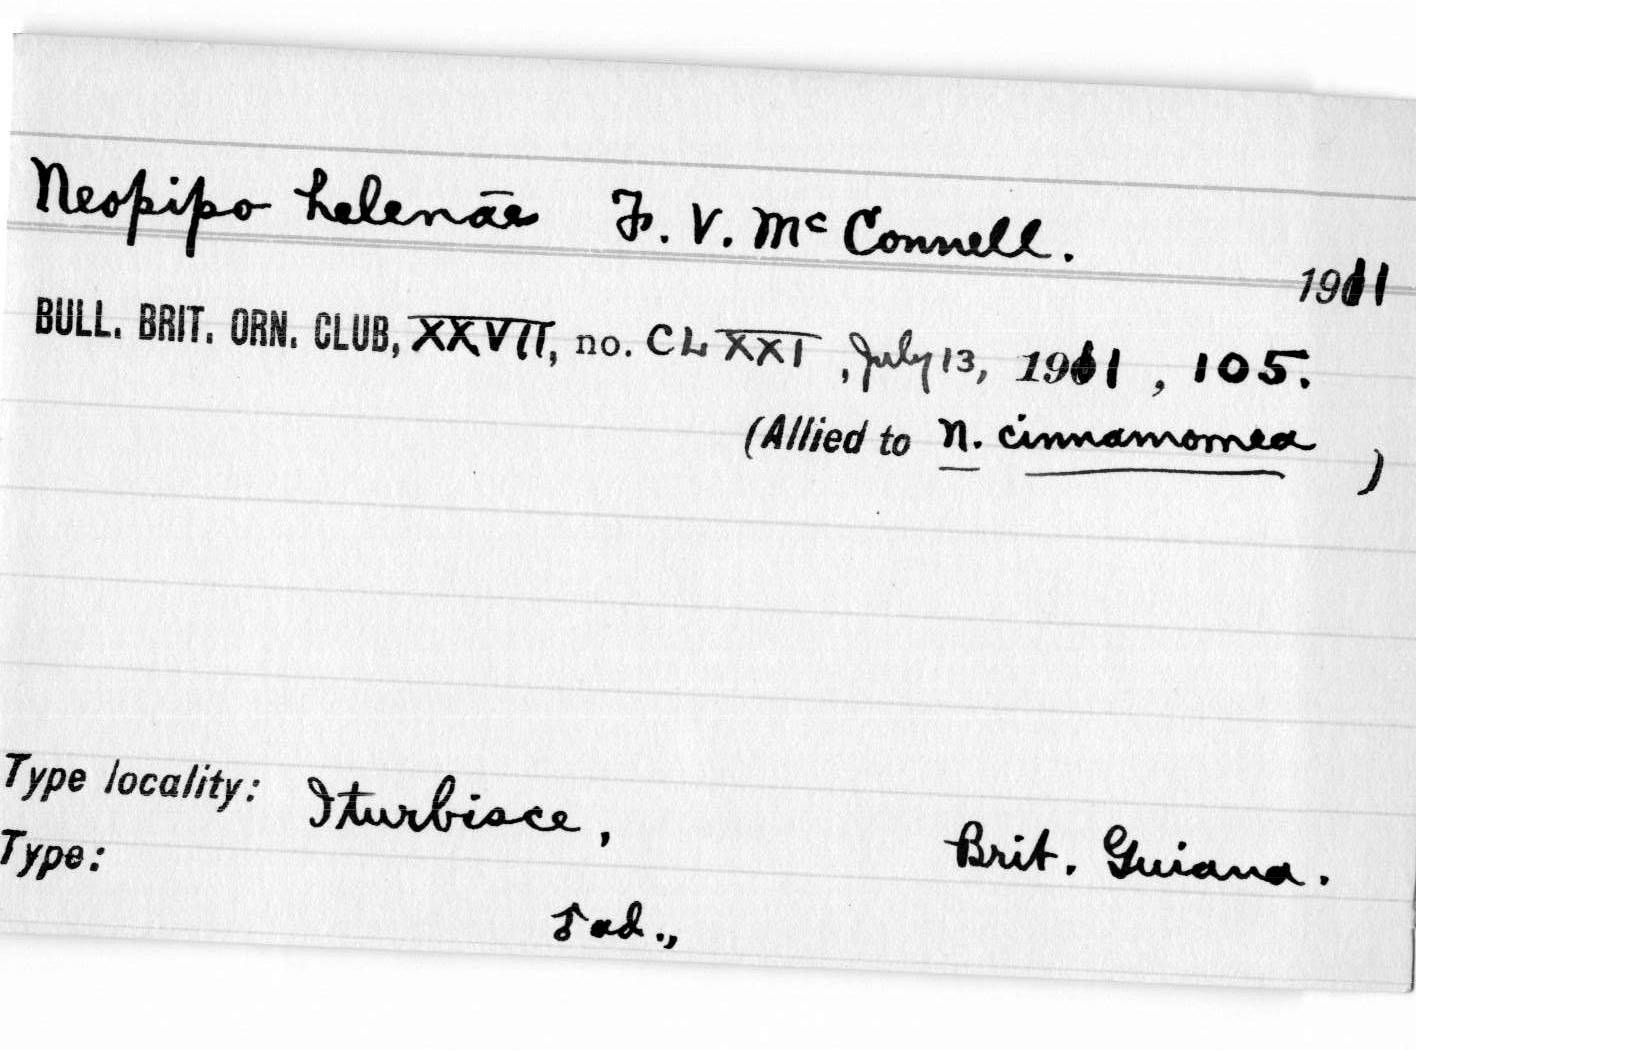 Neopipo helenāe F. V. McConnell.
1911
BULL. BRIT. ORN. CLUB, XXVII, no. CLXXI, July 13, 1911, 105.
(Allied to N. cinnamomea )
Type locality: Iturbisce, Brit. Guiana.
Type:
♂ ad.,